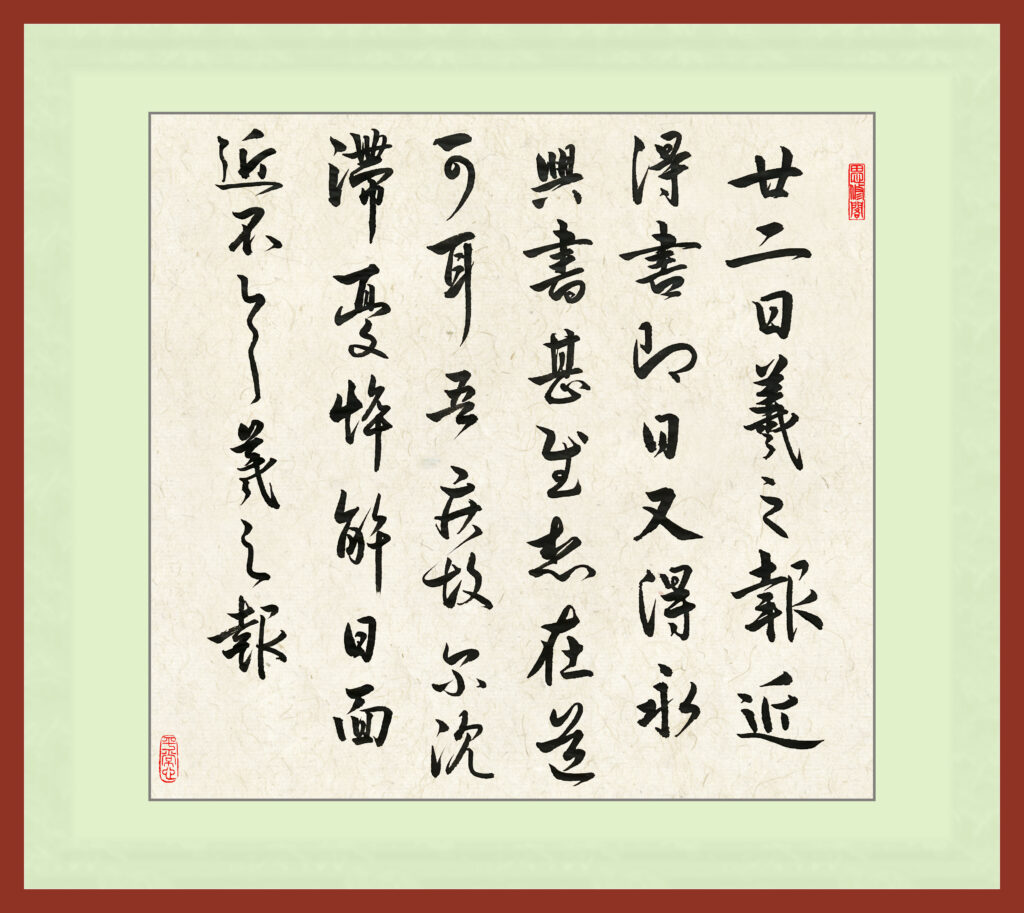 思修閣
廿二日羲之報近
得書即日又得永
興書甚慰想在道
可耳吾疾故尔沈
滯憂悴解日面
近不羲之報
平常心